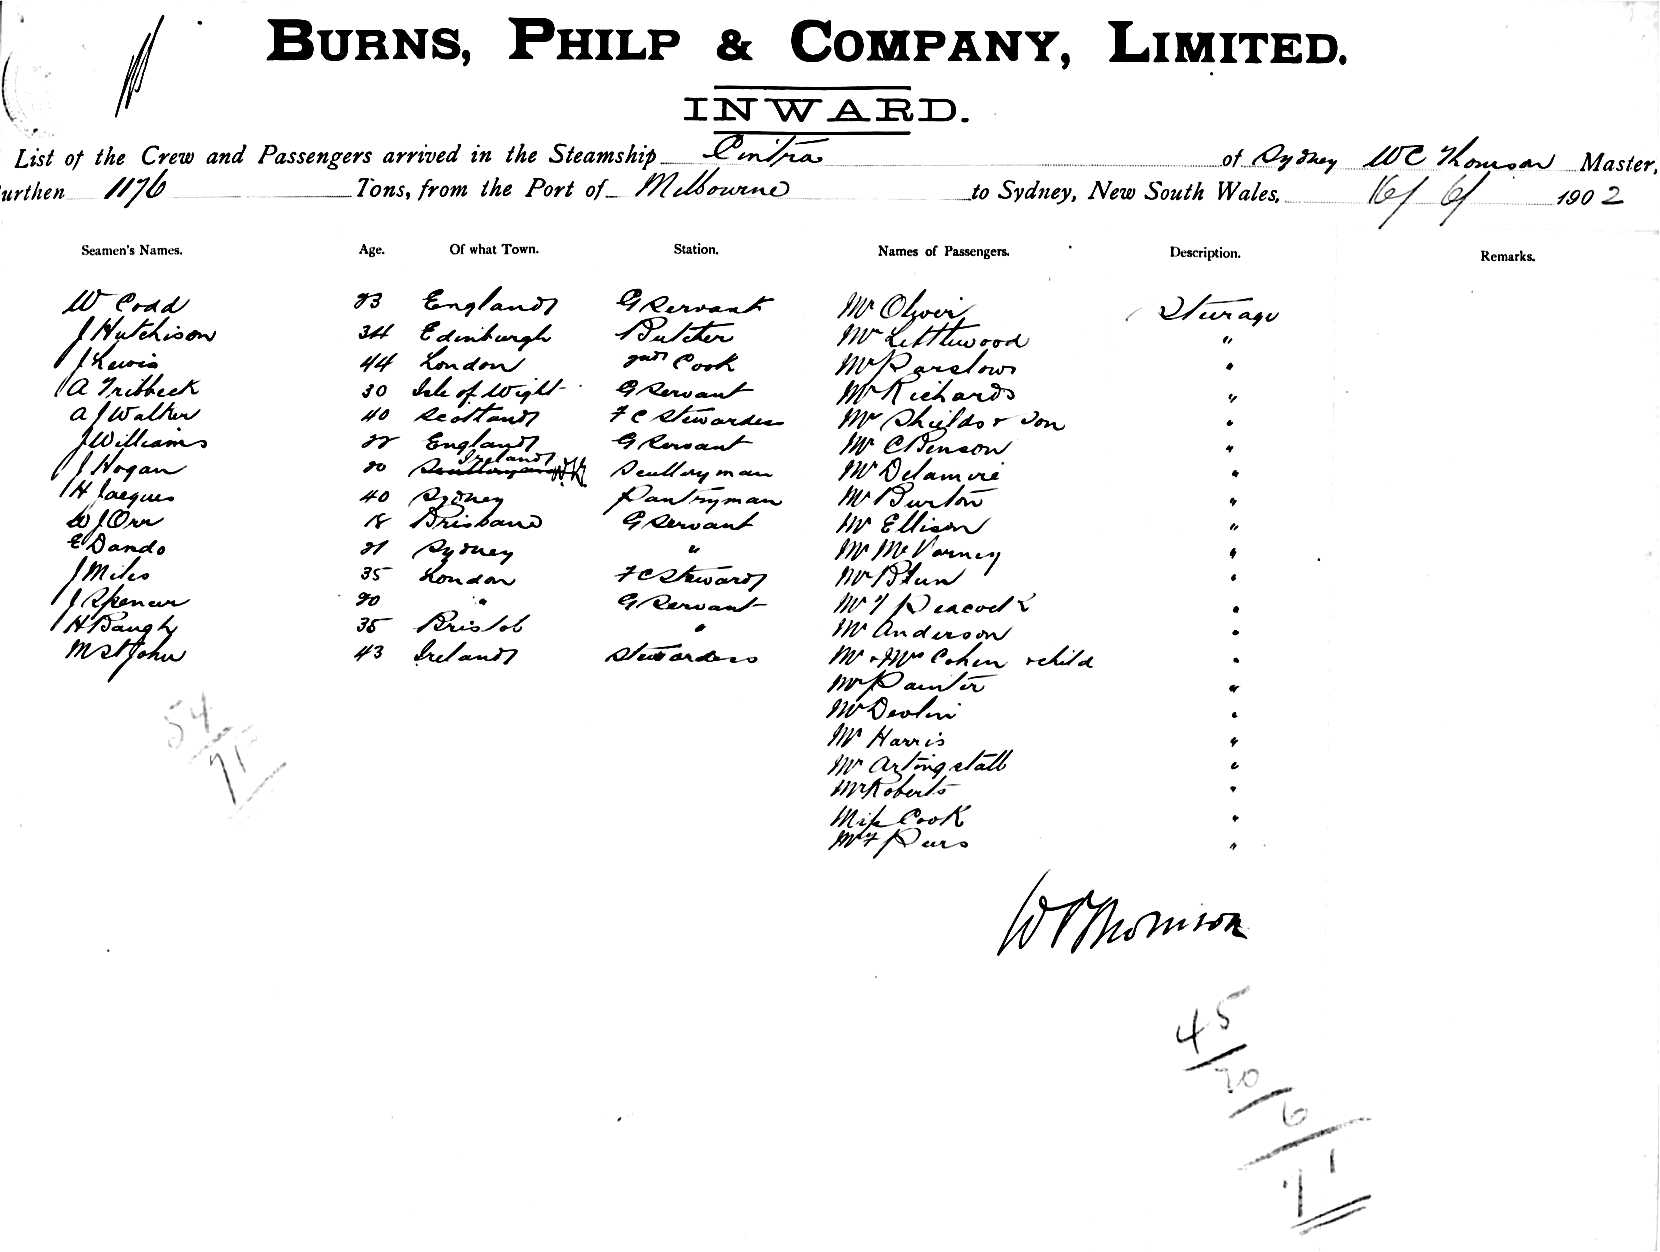 BURNS, PHILP & COMPANY, LIMITED.
INWARD.
List of the Crew and Passengers arrived in the Steamship Cintra of Sydney WC Thomson Master,
urthen 1176 Tons, from the Port of Melbourne to Sydney, New South Wales, 16/6/ 1902
Seamen's Names. Age. Of what Town. Station. Names of Passengers. Description. Remarks.
W Codd 23 England G Servant Mr Oliver Steerage
J Hutchison 34 Edinburgh Butcher Mr Littlewood "
J Lewis 44 London Cook Mr Parslow "
A Tritbeck 30 Isle of Wight G Servant Mr Richards "
A J Walker 40 Scotland F C Stewardess Mr Shields & Son "
J Williams 22 England G Servant Mr C Benson "
J Hogan 20 Ireland Scullery man Mr Delamere "
H Jacques 40 Sydney Pantryman Mr Burton "
W J Orr 18 Brisbane G Servant Mr Ellison "
E Dando 21 Sydney " Mr McVarney "
J Miles 35 London F C Steward Mr Blun "
J Spencer 20 " G Servant Mr J Peacock "
H Baugh 35 Bristol " Mr Anderson "
M St John 43 Ireland Stewardess Mr & Mrs Cohen & child "
Mr Painter "
Mr Devlin "
Mr Harris "
Mr Artingstall "
Mr Roberts "
Miss Cook "
54
71
WC Thomson
45
20
6
71